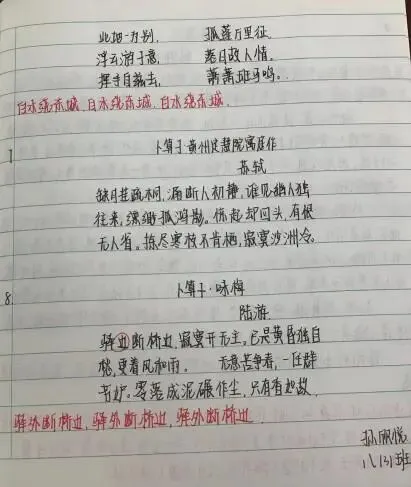 此地一为别, 孤莲万里征.
浮云游子意, 落日故人情.
挥手自兹去, 萧萧班马鸣.
白水绕东城, 白水绕东城, 白水绕东城.
7
卜算子·黄州定慧院寓居作
苏轼
缺月挂疏桐,漏断人初静,谁见幽人独
往来,缥缈孤鸿影。惊起却回头,有恨
无人省。拣尽寒枝不肯栖,寂寞沙洲冷。
8.
卜算子·咏梅
陆游
驿边断桥边,寂寞开无主,已是黄昏独自
愁,更着风和雨。 无意苦争春,一任群
芳妒。零落成泥碾作尘,只有香如故
驿外断桥边,驿外断桥边,驿外断桥边
八(3)班